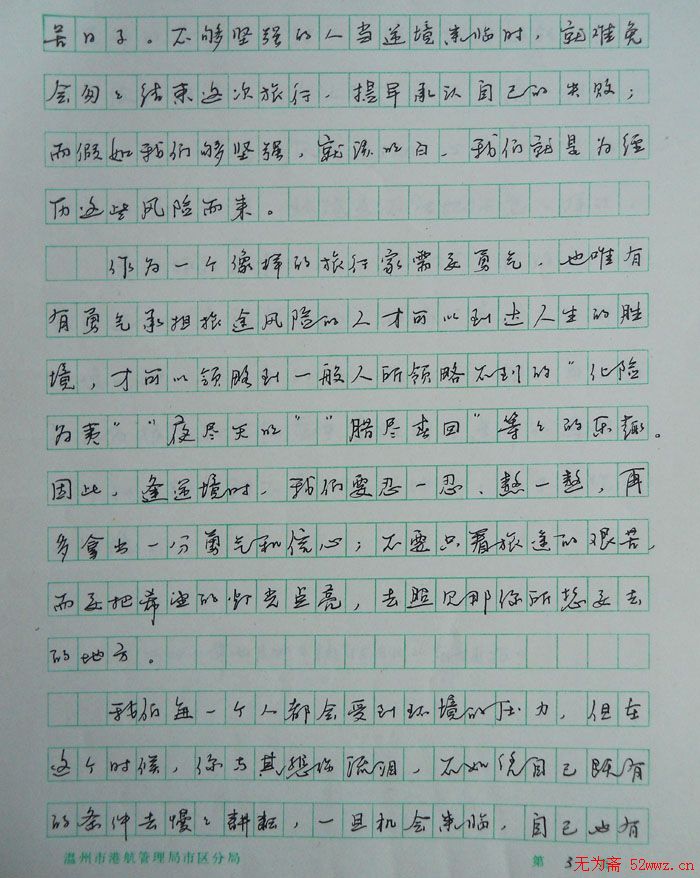 苦日子。不够坚强的人当逆境来临时，就难免
会匆匆结束这次旅行，提早承认自己的失败；
而假如我们够坚强，就该明白，我们就是为经
历这些风险而来。
作为一个像样的旅行家需要勇气，也唯有
有勇气承担旅途风险的人才可以到达人生的胜
境，才可以领略到一般人所领略不到的“化险
为夷”“夜尽天明”“腊尽春回”等等的乐趣。
因此，逢逆境时，我们要忍一忍、熬一熬，再
多拿出一分勇气和信心；不要只看旅途的艰苦，
而要把希望的灯光点亮，去照见那你所想要去
的地方。
我们每一个人都会受到环境的压力，但在
这个时候，你与其想你流泪，不如凭自己既有
的条件去慢慢耕耘，一旦机会来临，自己也有
温州市港航管理局市区分局
第 3
无为斋 52wwz.cn